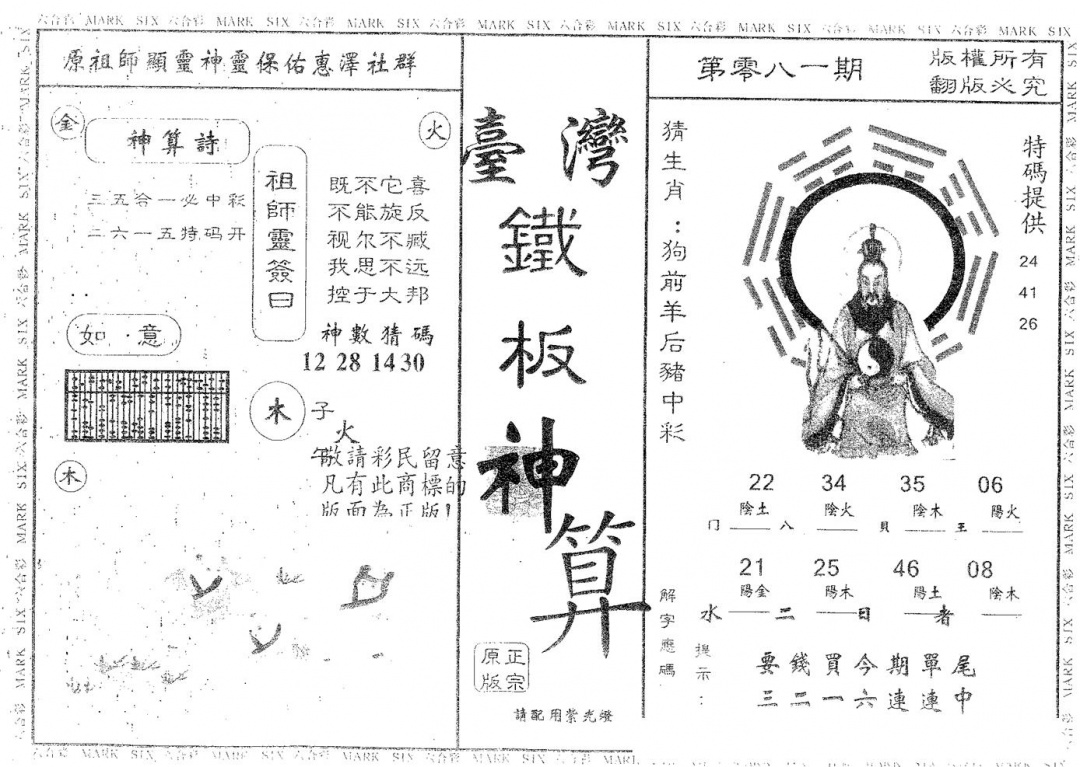 六合彩 MARK SIX 六合彩 MARK SIX 六合彩 MARK SIX 六合彩 MARK SIX 六合彩 MARK SIX 六合彩 MARK SIX 六合彩 MARK SIX 六合彩 MARK SIX
原祖師顯靈神靈保佑惠澤社群
金
神算詩
火
三五合一必中彩
二六一五特码开
祖師靈簽曰
既不它喜
不能旋反
视尔不臧
我思不远
控于大邦
如·意
神數猜碼
12 28 14 30
木
子
火
午
敬請彩民留意
凡有此商標的
版面為正版!
木
臺灣
鐵
板
神
算
正宗
原版
請配用紫光燈
第零八一期
版權所有
翻版必究
猜生肖：狗前羊后豬中彩
特碼提供
24
41
26
22 34 35 06
陰土 陰火 陰木 陽火
门 八 貝 王
21 25 46 08
陽金 陽木 陽土 陰木
水 二 日 者
解字應碼
提示：
要錢買今期單尾
三二一六連連中